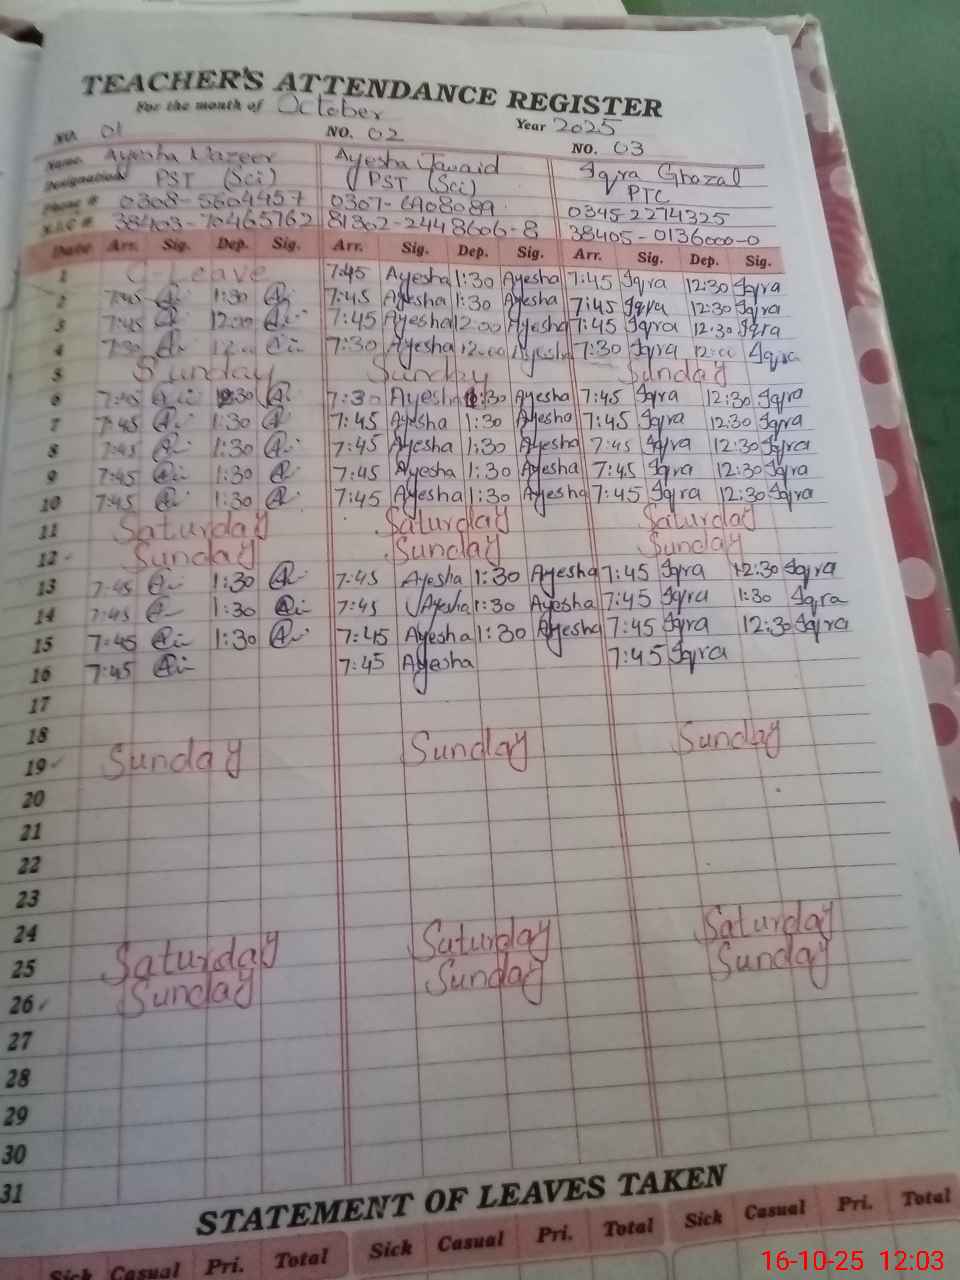 TEACHER'S ATTENDANCE REGISTER
For the month of October
Year 2025
NO. 01 NO. 02 NO. 03
Name. Ayesha Nazeer Ayesha Jawaid Iqra Ghazal
Designation PST (Sci) PST (Sci) PTC
Phone # 0308-5604457 0307-6908089 0345-2274325
N.I.C # 38403-70465762 81302-2448606-8 38405-0136000-0
Date Arr. Sig. Dep. Sig. Arr. Sig. Dep. Sig. Arr. Sig. Dep. Sig.
1 C-Leave 7:45 Ayesha 1:30 Ayesha 7:45 Iqra 12:30 Iqra
2 7:45 1:30 7:45 Ayesha 1:30 Ayesha 7:45 Iqra 12:30 Iqra
3 7:45 12:00 7:45 Ayesha 12:00 Ayesha 7:45 Iqra 12:30 Iqra
4 7:30 12:00 7:30 Ayesha 12:00 Ayesha 7:30 Iqra 12:00 Iqra
5 Sunday Sunday Sunday
6 7:45 7:30 Ayesha 1:30 Ayesha 7:45 Iqra 12:30 Iqra
7 7:45 1:30 7:45 Ayesha 1:30 Ayesha 7:45 Iqra 12:30 Iqra
8 7:45 1:30 7:45 Ayesha 1:30 Ayesha 7:45 Iqra 12:30 Iqra
9 7:45 1:30 7:45 Ayesha 1:30 Ayesha 7:45 Iqra 12:30 Iqra
10 7:45 1:30 7:45 Ayesha 1:30 Ayesha 7:45 Iqra 12:30 Iqra
11 Saturday Saturday Saturday
12 Sunday Sunday Sunday
13 7:45 1:30 7:45 Ayesha 1:30 Ayesha 7:45 Iqra 12:30 Iqra
14 7:45 1:30 7:45 Ayesha 1:30 Ayesha 7:45 Iqra 1:30 Iqra
15 7:45 1:30 7:45 Ayesha 1:30 Ayesha 7:45 Iqra 12:30 Iqra
16 7:45 7:45 Ayesha 7:45 Iqra
17
18
19 Sunday Sunday Sunday
20
21
22
23
24
25 Saturday Saturday Saturday
26 Sunday Sunday Sunday
27
28
29
30
31
STATEMENT OF LEAVES TAKEN
Sick Casual Pri. Total Sick Casual Pri. Total Sick Casual Pri. Total
16-10-25 12:03